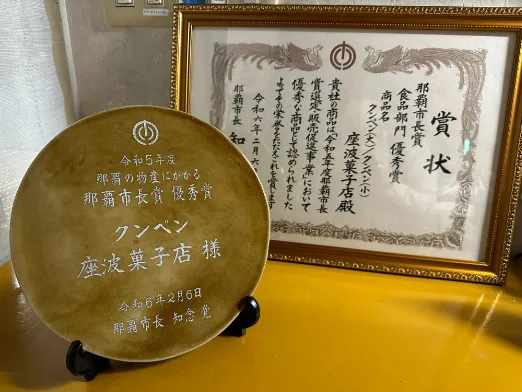 令和5年度
那覇の物産にかかる
那覇市長賞 優秀賞
クンペン
座波菓子店 様
令和6年2月6日
那覇市長 知念 覚
賞状
那覇市長賞
食品部門 優秀賞
商品名
クンペン(大)クンペン(小)
座波菓子店 殿
貴社の商品は「令和五年度那覇市長
賞選定・販売促進事業」において
優秀な商品として認められました
よってその栄誉をたたえこれを賞します
令和六年二月六日
那覇市長 知